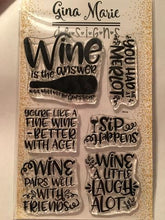 Gina Marie
DESIGNS
WINE
IS THE ANSWER
YOU HAD
ME AT
MERLOT
YOU'RE LIKE A
FINE WINE
BETTER
WITH AGE!
SIP
HAPPENS
WINE
PAIRS WELL
WITH
FRIENDS
WINE
A LITTLE
LAUGH
ALOT